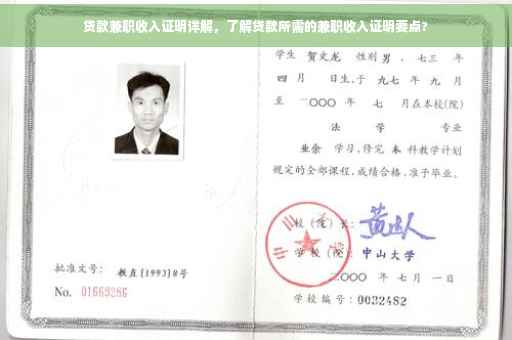 贷款兼职收入证明详解，了解贷款所需的兼职收入证明要点？
学生 贺文龙 性别 男，七三 年
四 月 日生，于 九七 年 九 月
至 二〇〇〇 年 七 月在本校(院)
法 学 专业
业余 学习，修完 本 科教学计划
规定的全部课程，成绩合格，准予毕业。
校 (院) 长：
学 校 (院)： 中山大学
二〇〇〇 年 七 月 一 日
学校编号：0032482
批准文号： 教直[1993]8号
No. 01669286